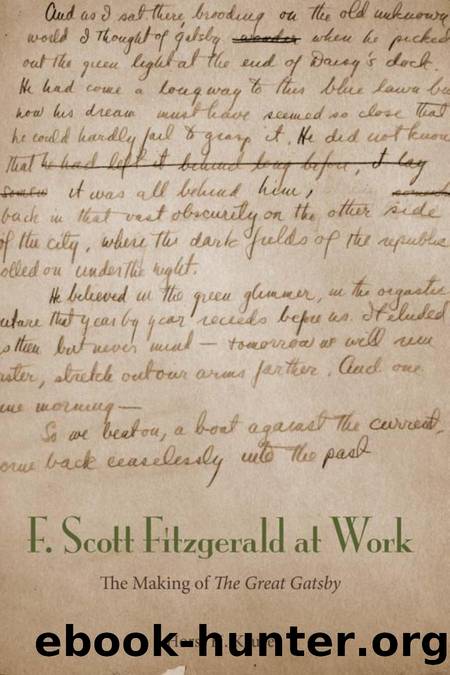 And as I sat there brooding on the old unknown
world I thought of Gatsby when he picked
out the green light at the end of Daisy's dock.
He had come a long way to this blue lawn bu
now his dream must have seemed so close that
he could hardly fail to grasp it. He did not know
that he had left it behind long before, it was all behind him,
back in that vast obscurity on the other side
of the city, where the dark fields of the republic
olled on under the night.
He believed in the green glimmer, in the orgastic
uture that year by year recedes before us. It eluded
s then but never mind — tomorrow we will run
aster, stretch out our arms farther. And one
ine morning —
So we beat on, a boat against the current,
orne back ceaselessly into the past
F. Scott Fitzgerald at Work
The Making of The Great Gatsby
ebook-hunter.org